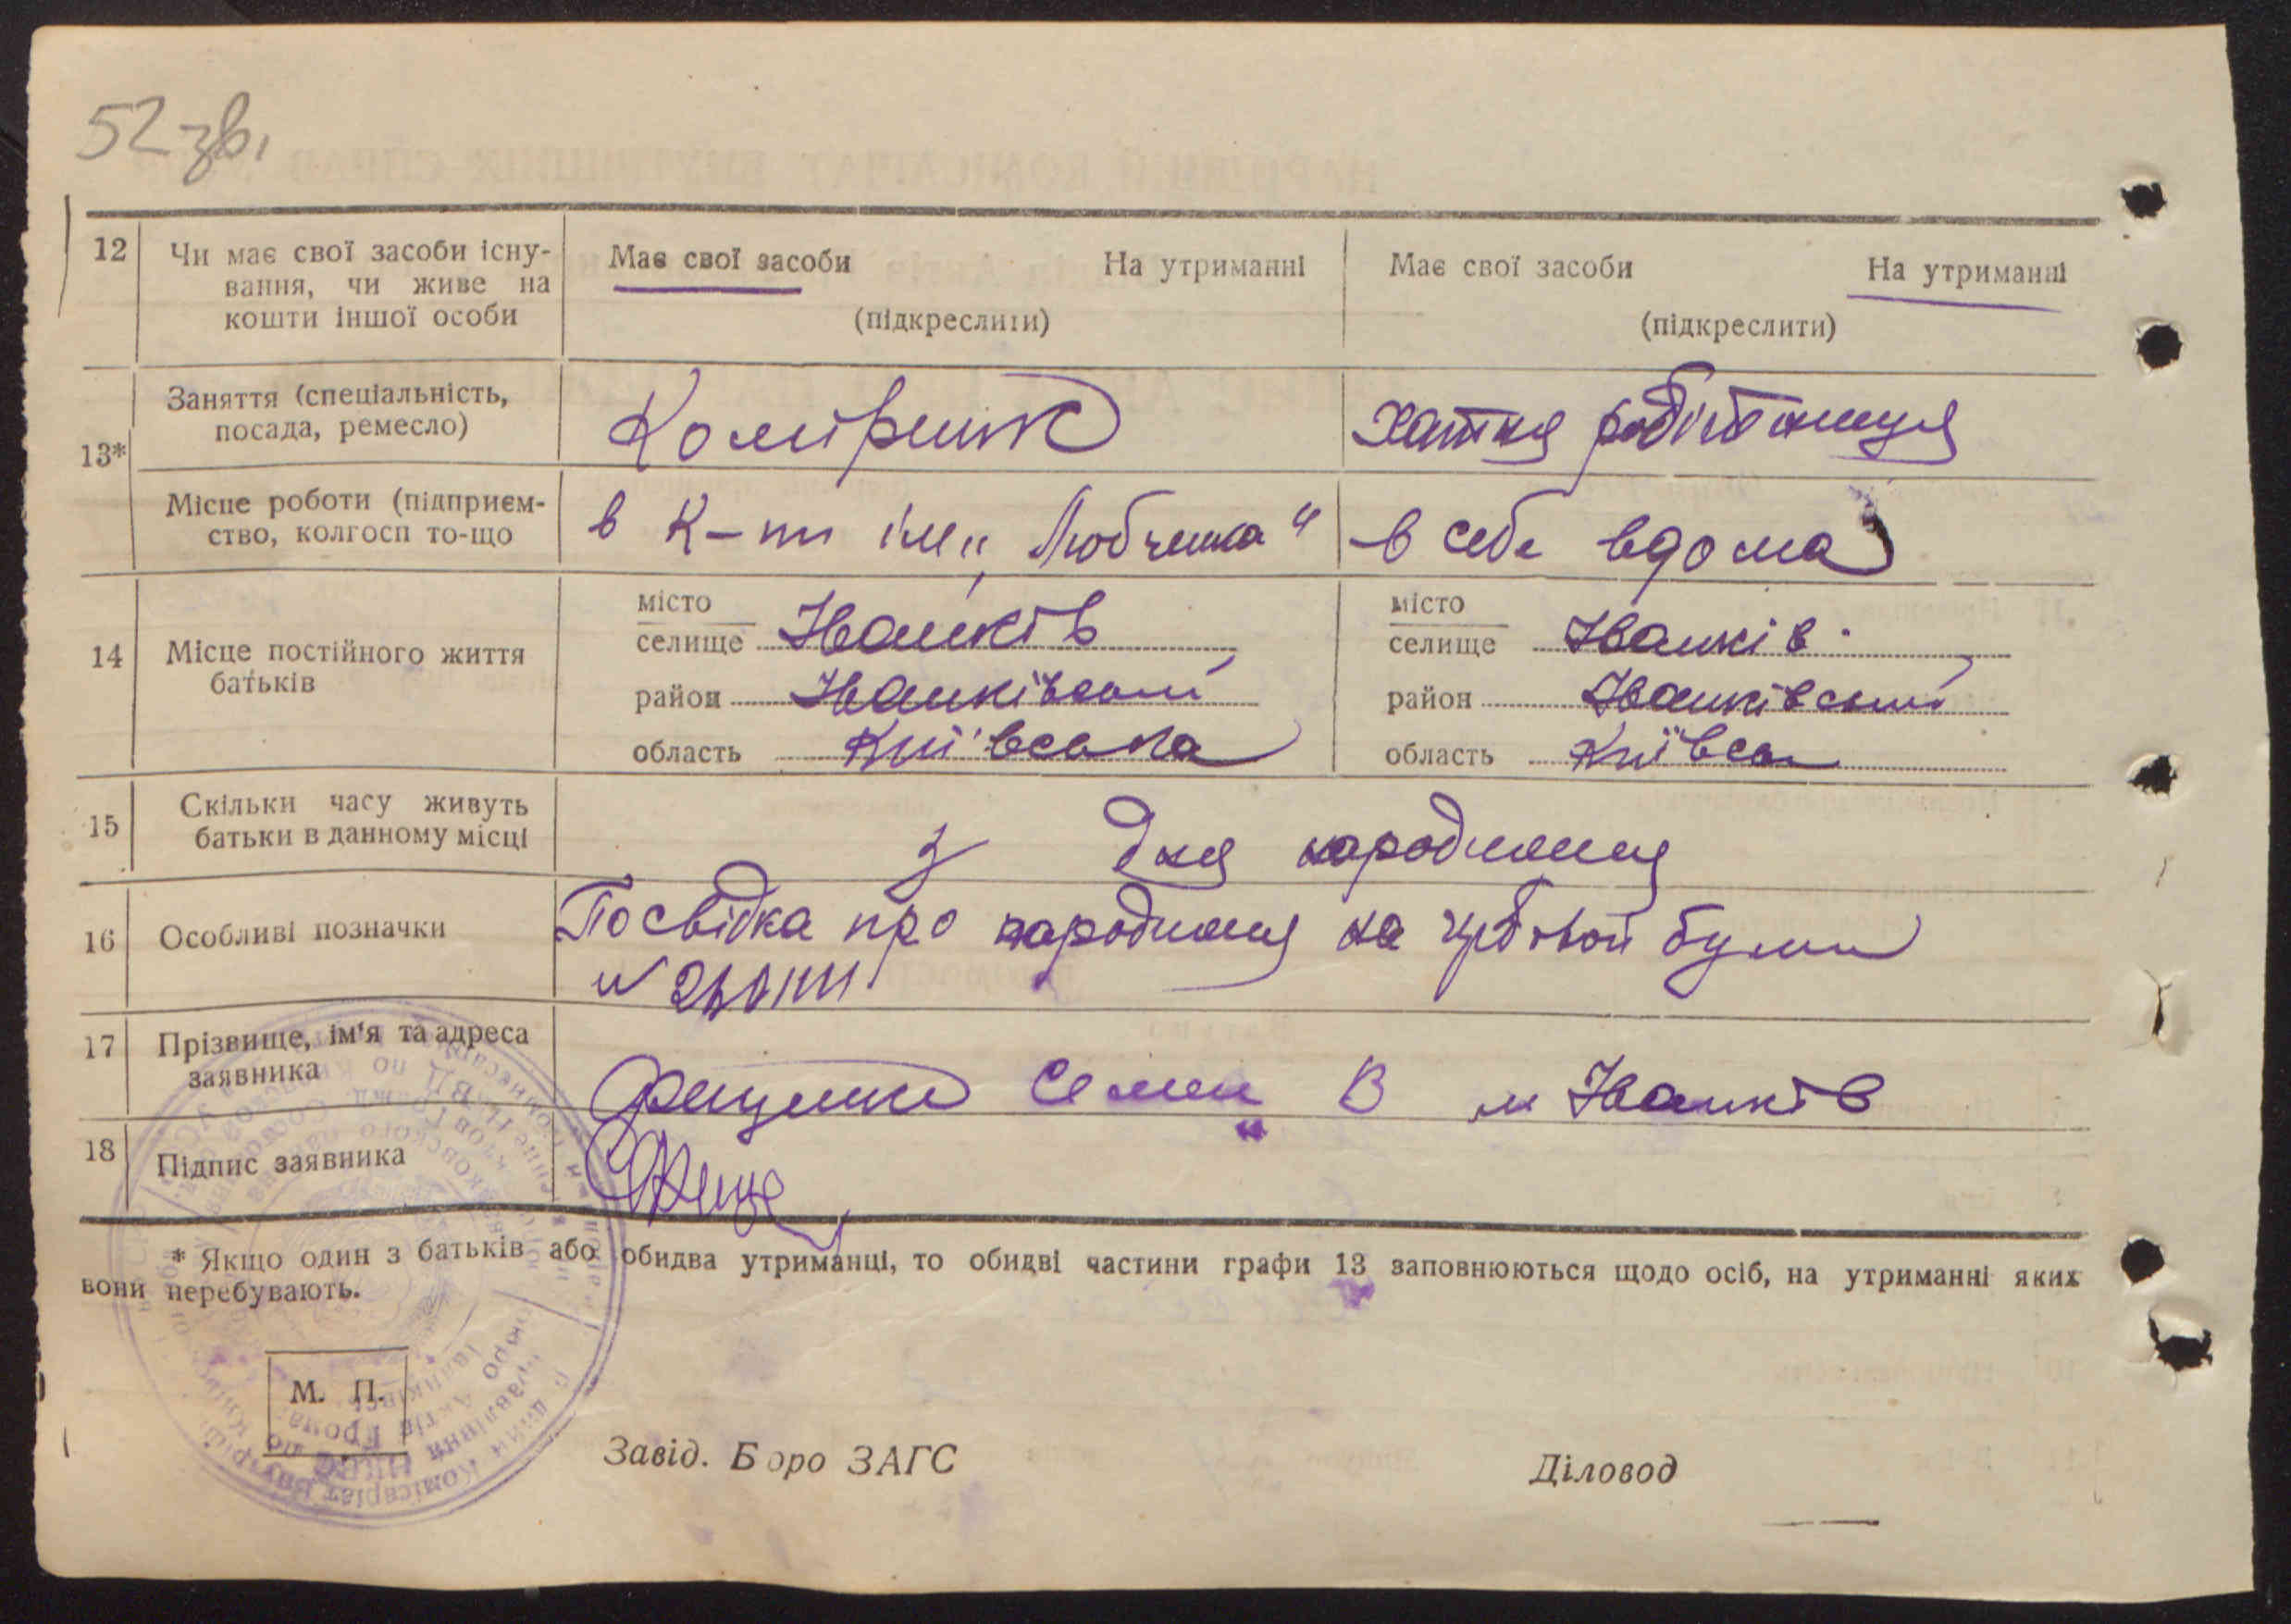 52 зв.
12 Чи має свої засоби існу- Має свої засоби На утриманні Має свої засоби На утриманні
вання, чи живе на
кошти іншої особи (підкреслити) (підкреслити)
13* Заняття (спеціальність,
посада, ремесло) Комірник Хатня робітниця
Місце роботи (підприєм-
ство, колгосп то-що в к-пі ім. „Любченка“ в себе вдома
14 Місце постійного життя
батьків
місто
селище Іванків
район Іванківський
область Київська
місто
селище Іванків
район Іванківський
область Київська
15 Скільки часу живуть
батьки в данному місці з дня народження
16 Особливі позначки Посвідка про народження на гербовой бумаі
№
17 Прізвище, ім'я та адреса
заявника Фещенко Семен В м Іванків
18 Підпис заявника Феще
* Якщо один з батьків або обидва утриманці, то обидві частини графи 13 заповнюються щодо осіб, на утриманні яких
вони перебувають.
М. П.
Завід. Бюро ЗАГС Діловод